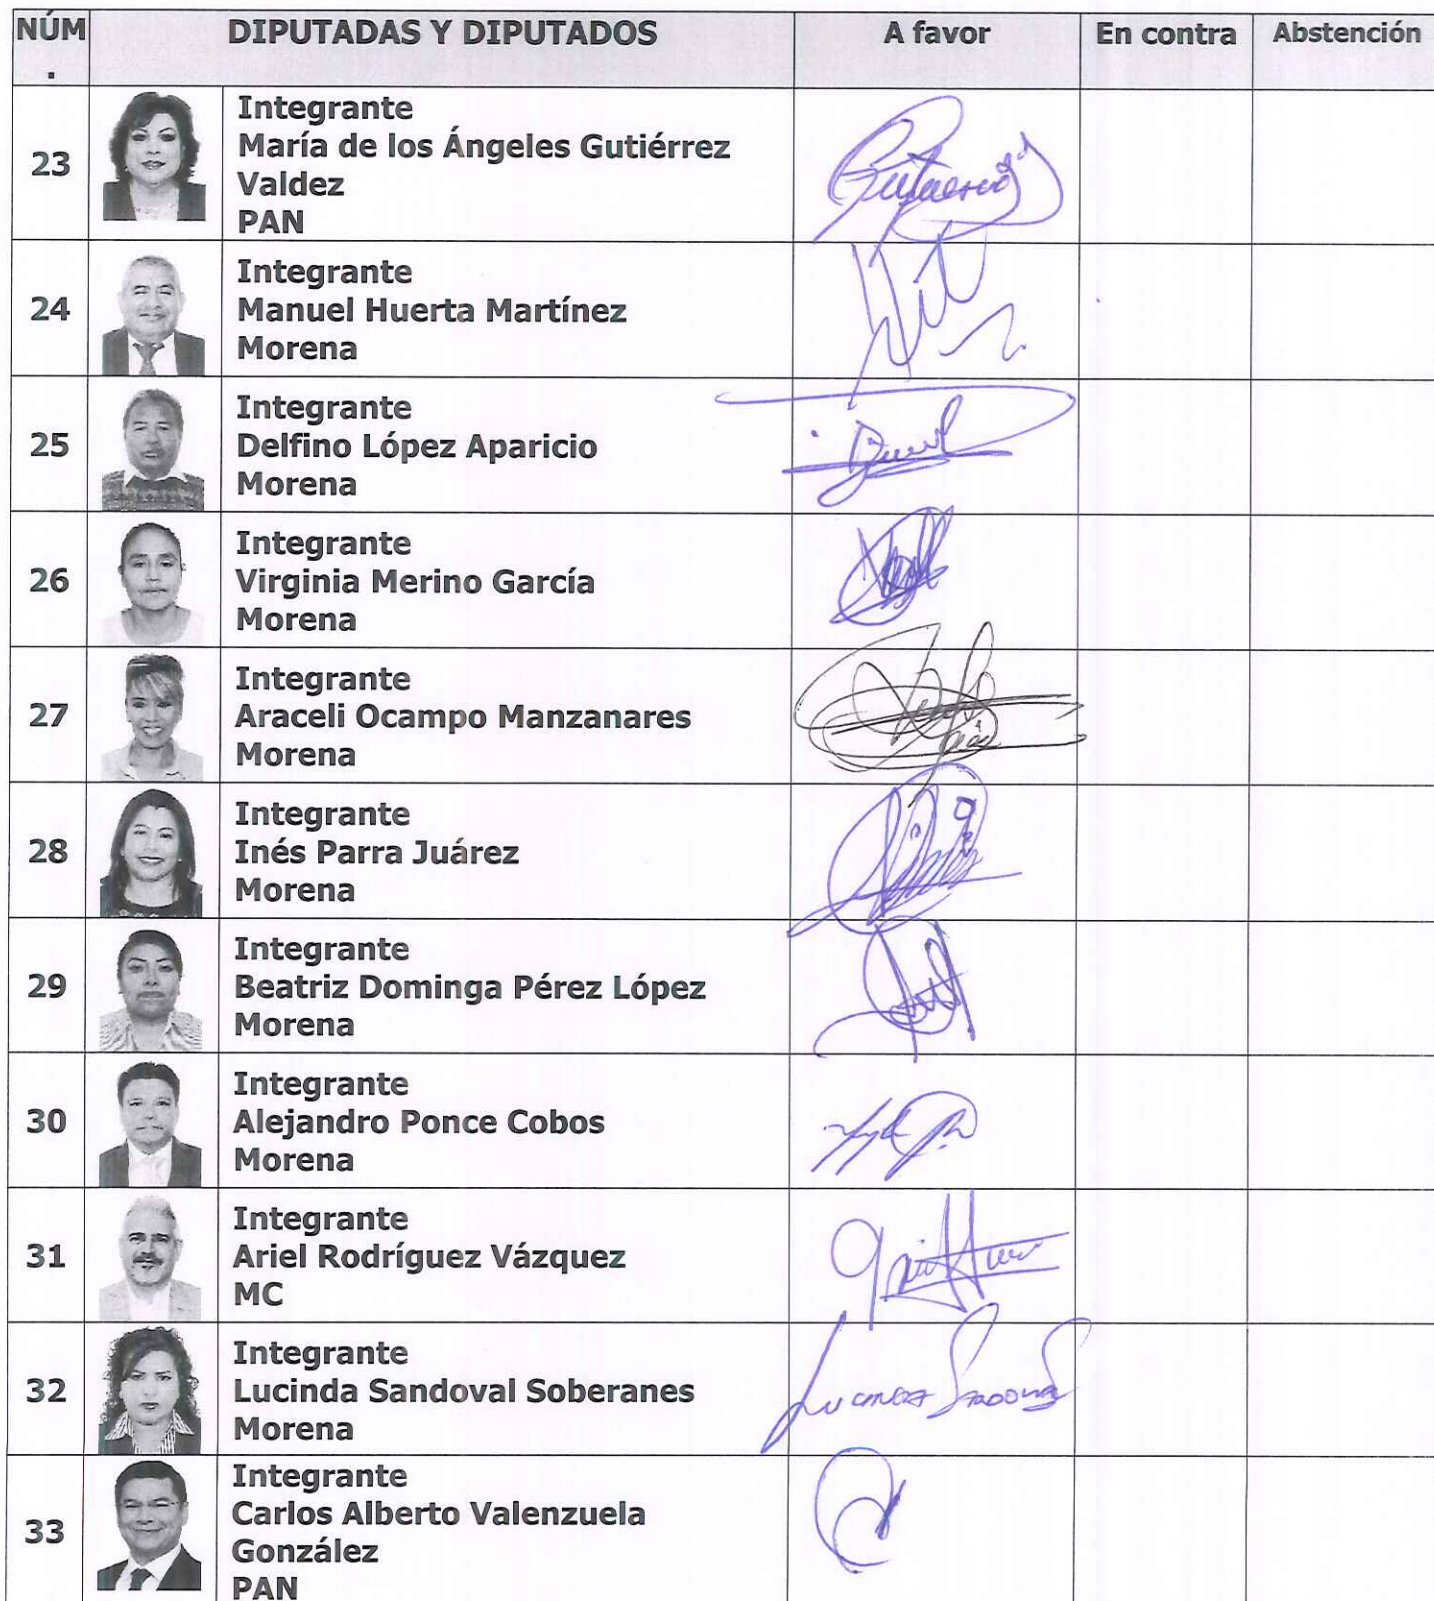 NÚM. DIPUTADAS Y DIPUTADOS A favor En contra Abstención
23
Integrante
María de los Ángeles Gutiérrez
Valdez
PAN
24
Integrante
Manuel Huerta Martínez
Morena
25
Integrante
Delfino López Aparicio
Morena
26
Integrante
Virginia Merino García
Morena
27
Integrante
Araceli Ocampo Manzanares
Morena
28
Integrante
Inés Parra Juárez
Morena
29
Integrante
Beatriz Dominga Pérez López
Morena
30
Integrante
Alejandro Ponce Cobos
Morena
31
Integrante
Ariel Rodríguez Vázquez
MC
32
Integrante
Lucinda Sandoval Soberanes
Morena
33
Integrante
Carlos Alberto Valenzuela
González
PAN